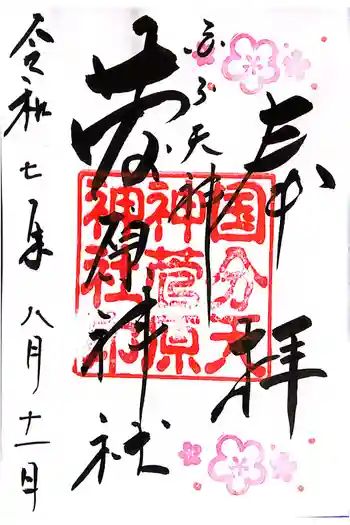 奉拝
天神
菅原神社
国分天
神菅原
神社印
令和七年八月十一日